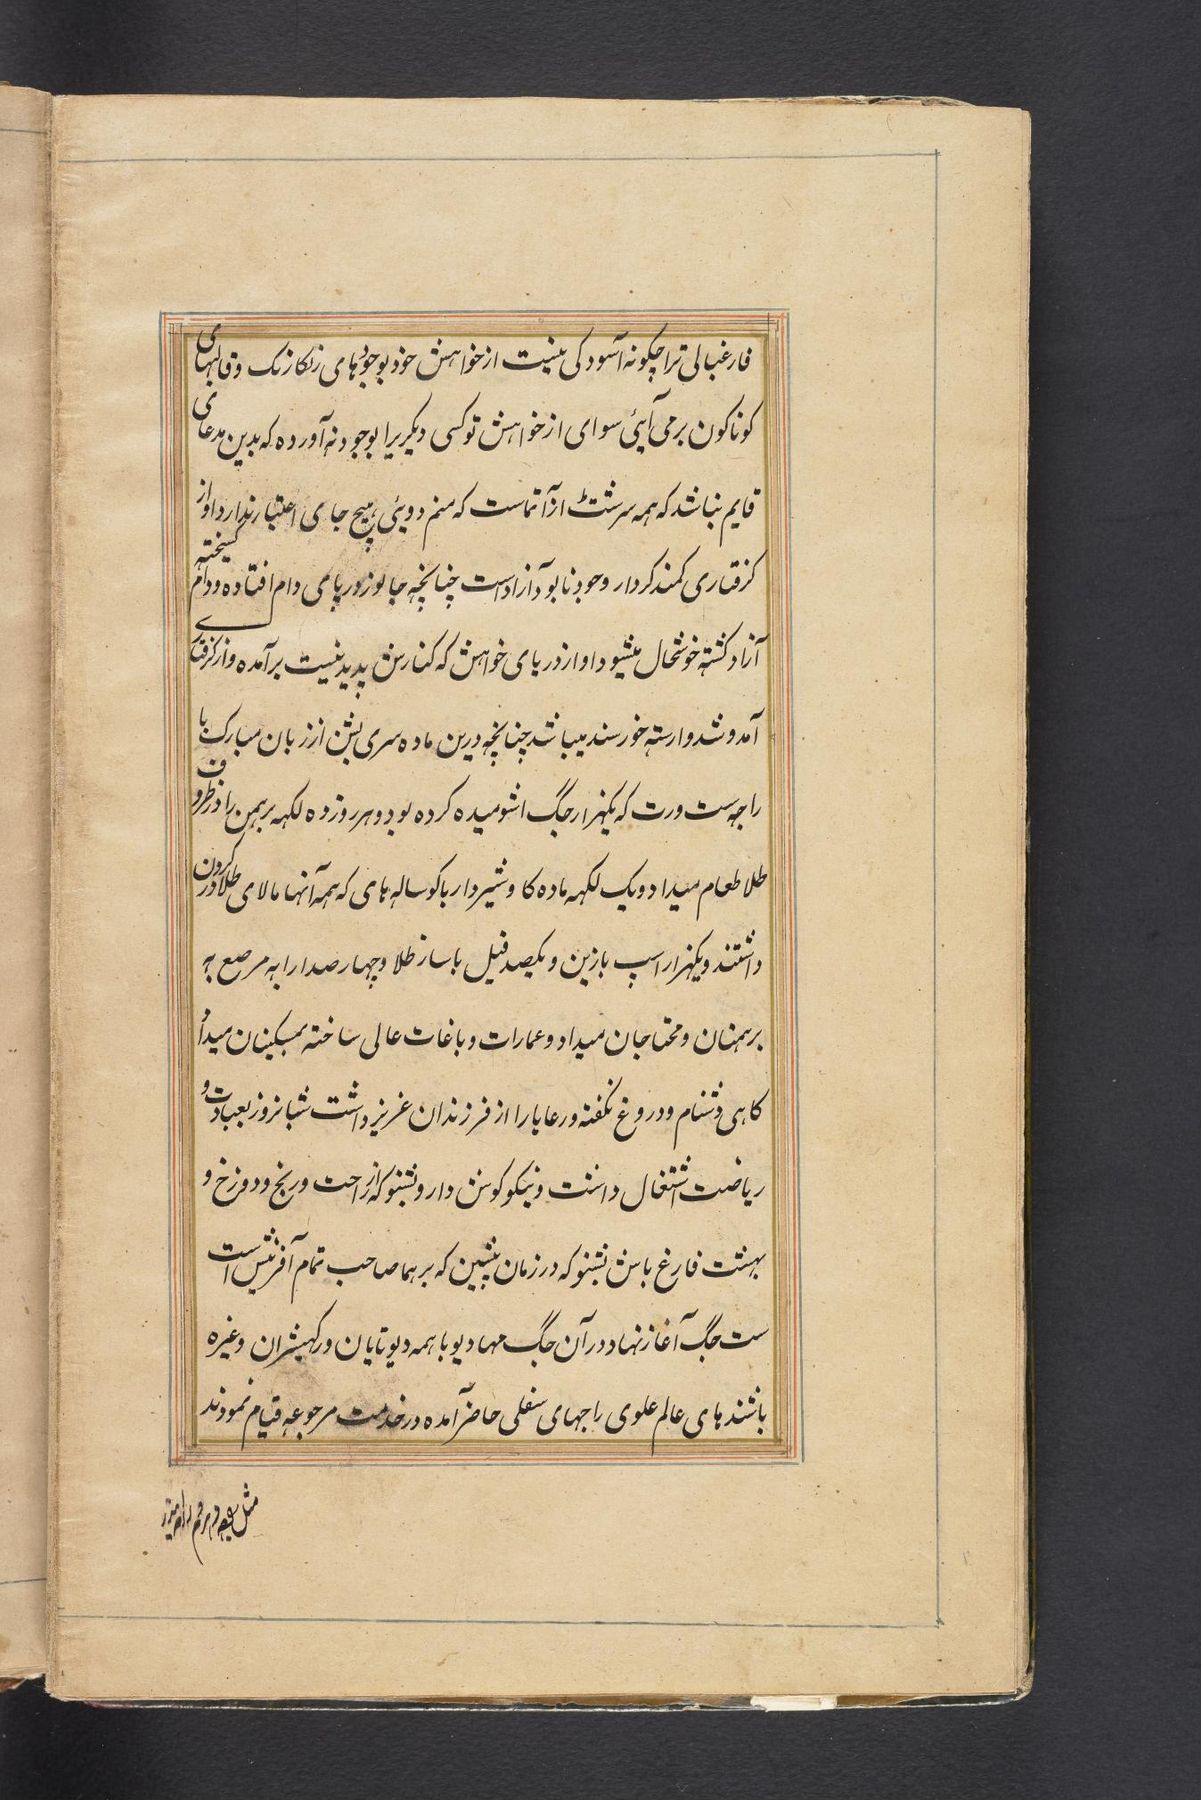 فارغبالی ترا چگونه آسودگی نیست از خواهش خود بوجودهای رنگارنگ و قالبهای
گوناگون برمی آیئی سوای از خواهش تو کسی دیگریرا بوجود نه آورده که بدین مدعای
قایم نباشد که همه سرشت از آتماست که منم دویئی هیچ جای اعتبار ندارد او از
گرفتاری کمند کردار وجود نابود آزاد است چنانچه جانور در پای دام افتاده و دام گسیخته
آزاد گشته خوشحال میشود او از دریای خواهش که کنارش پدید نیست برآمده و از گرفتاری
آمد و شد وارسته خورسند میباشد چنانچه درین ماده سری بشن از زبان مبارک با
راجه ست ورت که یکهزار جگ اشومیده کرده بود و هر روز ده لکهه برهمن را در ظروف
طلا طعام میداد و یک لکهه ماده گاو شیردار با گوساله های که همه آنها مالای طلا در گردن
داشتند و یکهزار اسپ بازین و یکصد فیل با ساز طلا و چهار صد ارابه مرصع به
برهمنان و محتاجان میداد و عمارات و باغات عالی ساخته بمسکینان میداد و
گاهی دشنام و دروغ نگفته و رعایا را از فرزندان عزیز داشت شبانروز بعبادت و
ریاضت اشتغال داشت و نیکو گوش دار و بشنو که از راحت و رنج و دوزخ و
بهشت فارغ باش بشنو که در زمان پیشین که برهما صاحب تمام آفرینش است
ست جگ آغاز نهاد در آن جگ مهادیو با همه دیوتایان و رکهیشران وغیره
باشندهای عالم علوی راجهای سفلی حاضر آمده در خدمت مرجوعه قیام نمودند
مثل